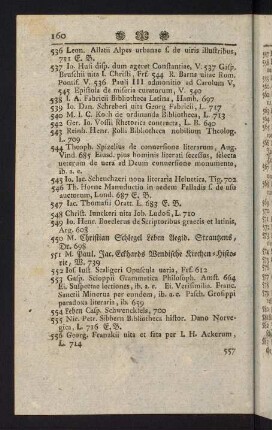 160
536 Leon. Allatii Apes urbanae s. de viris illustribus,
711 E. B.
537 Io. Hasi disp. dum ageret Constantiae, V. 537 Gasp.
Bruschii uita I. Christi, Frf. 544 R. Barns uitae Rom.
Pontif. V. 536 Pauli III admonitio ad Carolum V,
545 Epistola de miseria curatorum, V. 540
538 I. A. Fabricii Bibliotheca Latina, Hamb. 697
539 Io. Dan. Schreberi uita Georg Fabricii, L. 717
540 M. I. C. Koch de ordinanda Bibliotheca, L. 713
542 Ger. Io. Vossii rhetorices contracta, L. B. 640
543 Reinh. Henr. Rolli Bibliotheca nobilium Theolog.
L. 709
544 Theoph. Spizelius de conuersione literarum, Aug.
Vind. 685 pius hominis literati secessus, selecta
uerorum de uera ad Deum conuersione monumenta,
ib. ead.
545 Io. Iac. Scheuchzeri noua literaria Heluetica, Tig. 702
546 Th. Horne Manuductio in aedem Palladis s. de usu
auctorum, Lund. 687 E. B.
547 Iac. Thomasii Orat. L. 683 E. B.
548 Christ. Iunckeri uita Iob. Ludolfi, L. 710
549 Io. Henr. Boeclerus de Scriptoribus graecis et latinis,
Arg. 608
550 M. Christian Schlegel Leben Aegid. Strauchens,
Dr. 698
551 M. Paul. Jac. Eckhards Wendische Kirchen-Histo-
rie, W. 739
552 Iof. Iust. Scaligeri Opuscula uaria, Frf. 612
553 Gasp. Scioppii Grammatica Philosoph. Amst. 664
Ei. Suspectae lectiones, ib. a. e. Ei. Verisimilia. Franc.
Sanctii Minerua per eundem, ib. a. e. Pasch. Grosippi
paradoxa literaria, ib. 659
554 Leben Casp. Schwenckfels, 700
555 Nic. Petr. Sibberns Bibliotheca histor. Dano Norve-
gica, L. 716 E. B.
556 Georg. Franckii uita et fata per I. H. Ackerum,
L. 714
557